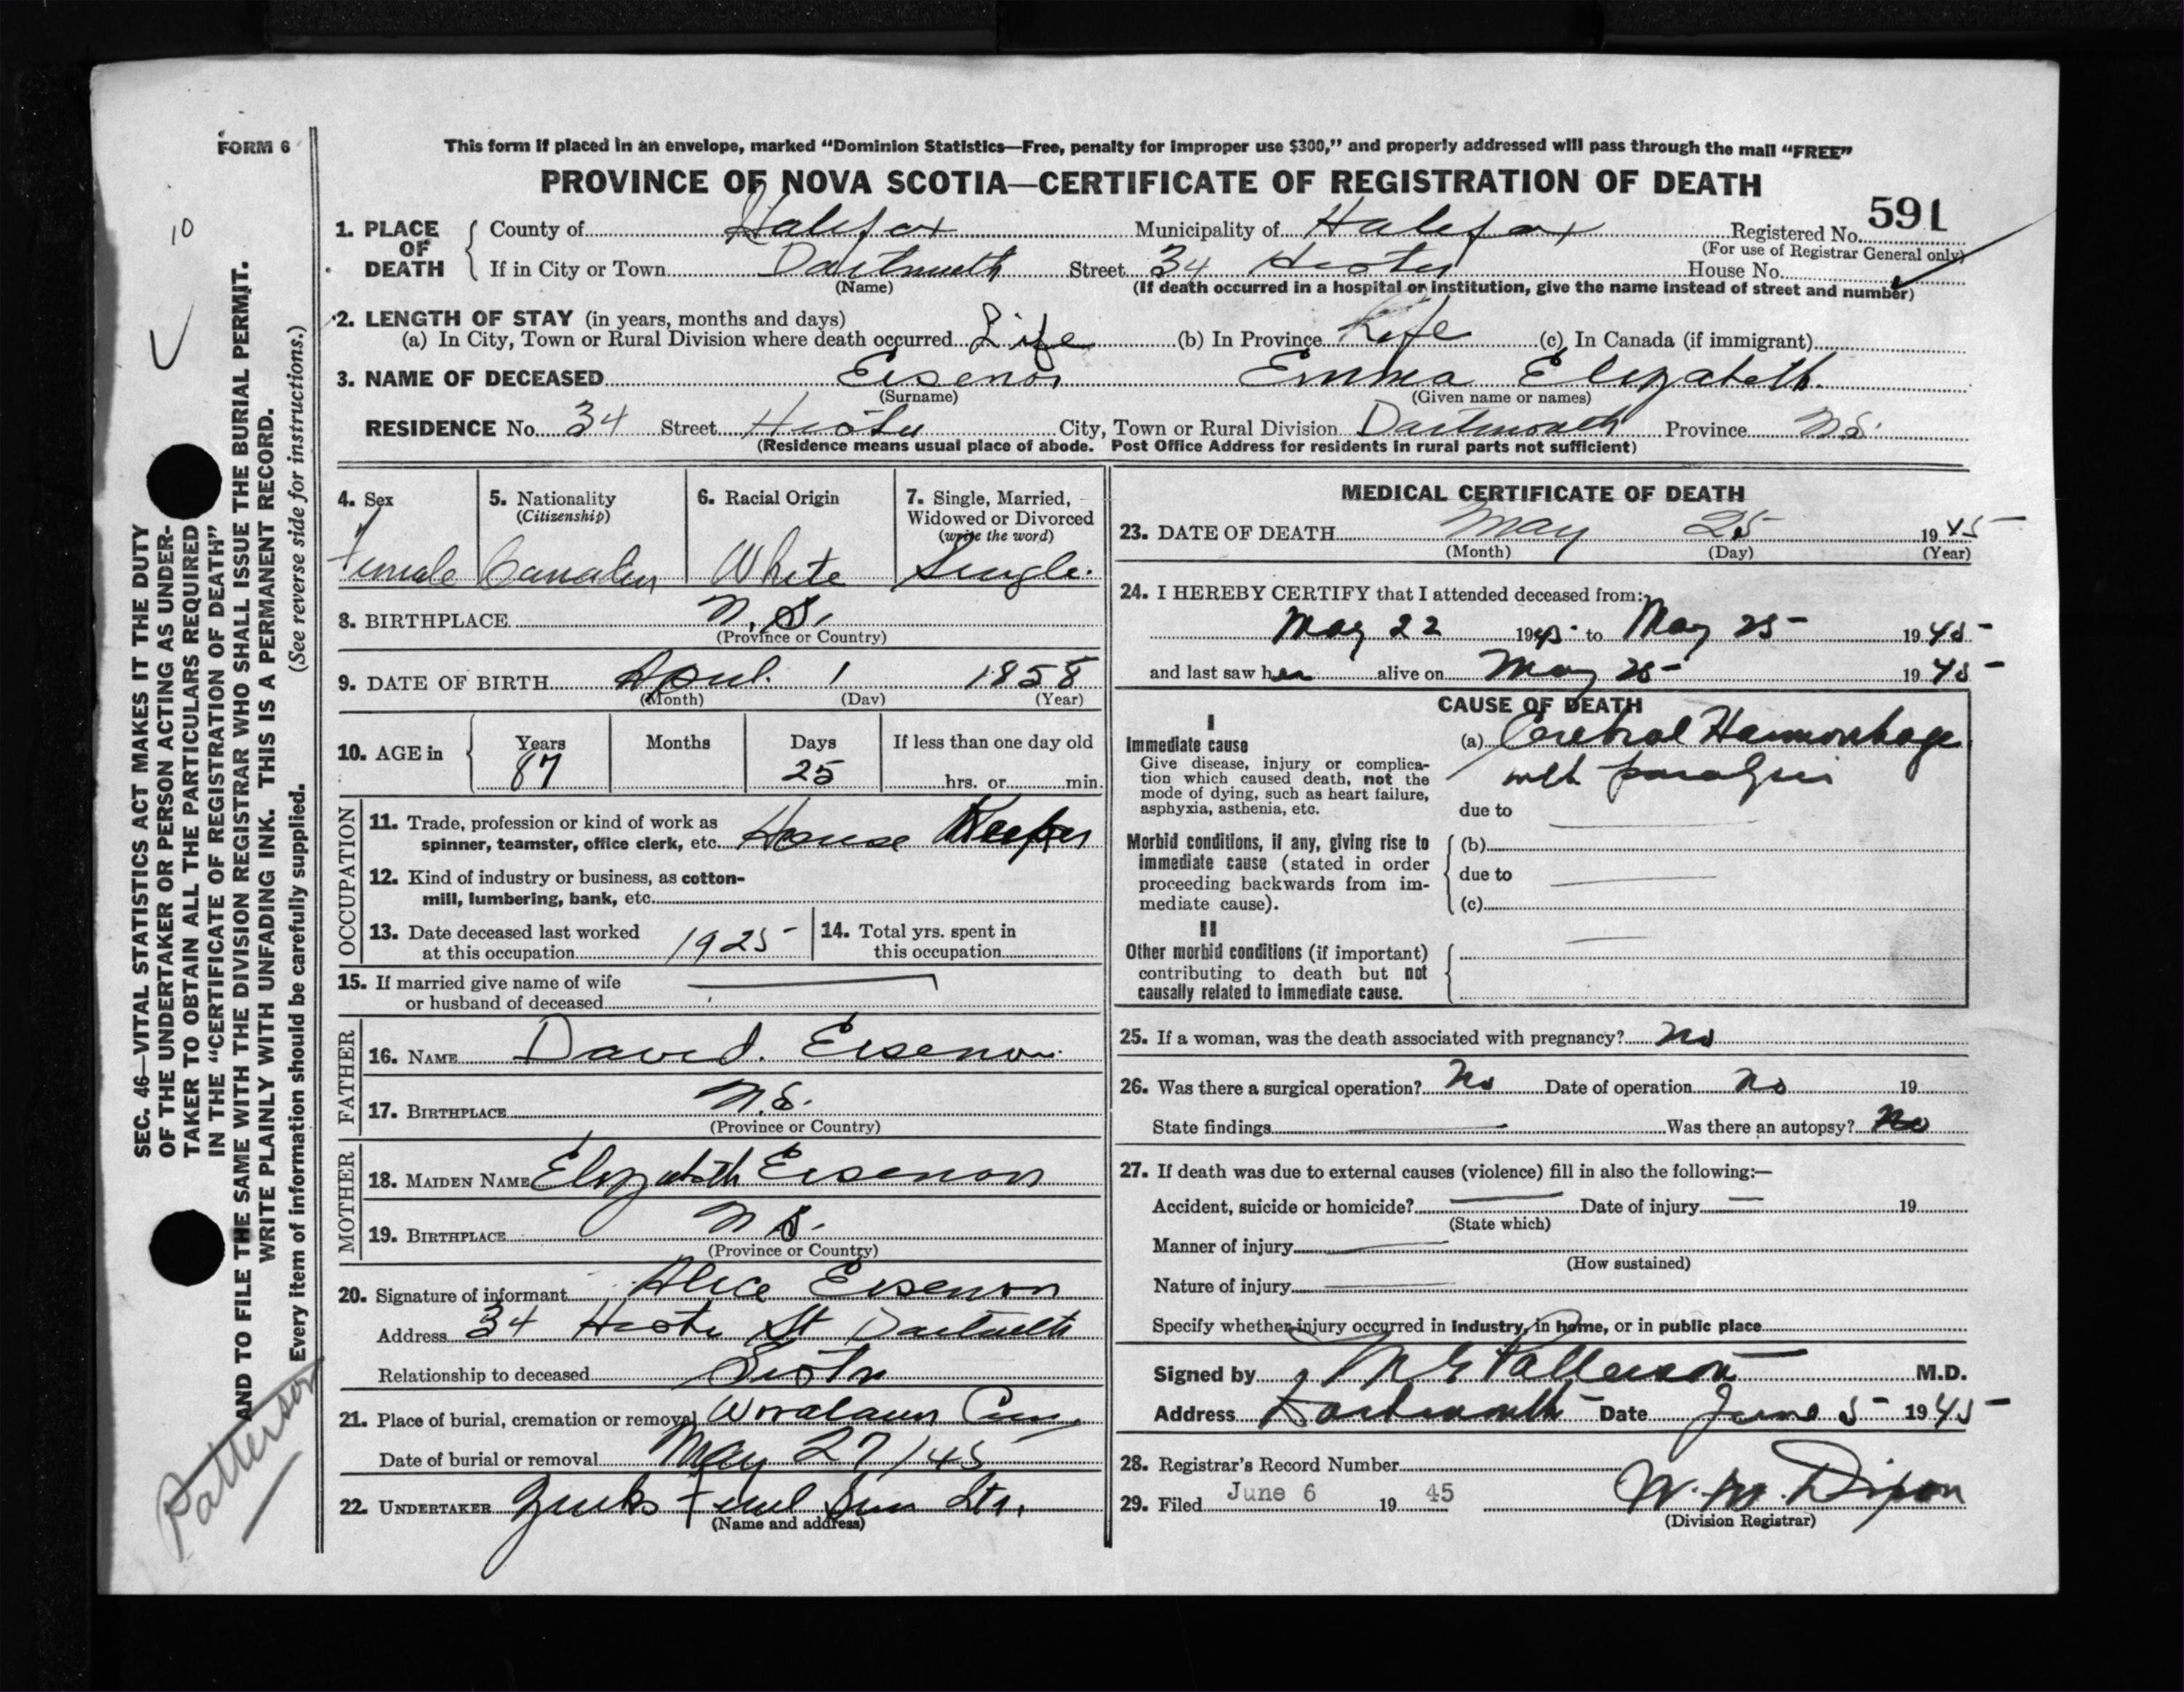 FORM 6
This form if placed in an envelope, marked “Dominion Statistics—Free, penalty for improper use $300,” and properly addressed will pass through the mail “FREE”
PROVINCE OF NOVA SCOTIA—CERTIFICATE OF REGISTRATION OF DEATH
10
591
1. PLACE OF DEATH County of Halifax Municipality of Halifax Registered No.
(For use of Registrar General only)
If in City or Town Dartmouth Street 34 House No.
(Name) (If death occurred in a hospital or institution, give the name instead of street and number)
2. LENGTH OF STAY (in years, months and days)
(a) In City, Town or Rural Division where death occurred Life (b) In Province Life (c) In Canada (if immigrant)
3. NAME OF DECEASED Eisenor Emma Elizabeth.
(Surname) (Given name or names)
RESIDENCE No. 34 Street City, Town or Rural Division Dartmouth Province N.S.
(Residence means usual place of abode. Post Office Address for residents in rural parts not sufficient)
4. Sex 5. Nationality 6. Racial Origin 7. Single, Married,
(Citizenship) Widowed or Divorced
(write the word)
Female White Single.
8. BIRTHPLACE N.S.
(Province or Country)
9. DATE OF BIRTH April 1 1858
(Month) (Day) (Year)
10. AGE in Years Months Days If less than one day old
87 25 hrs. or min.
OCCUPATION
11. Trade, profession or kind of work as
spinner, teamster, office clerk, etc. House Keeper
12. Kind of industry or business, as cotton-
mill, lumbering, bank, etc.
13. Date deceased last worked 14. Total yrs. spent in
at this occupation 1925 this occupation
15. If married give name of wife
or husband of deceased
FATHER
16. NAME David. Eisenor.
17. BIRTHPLACE N.S.
(Province or Country)
MOTHER
18. MAIDEN NAME Elizabeth Eisenor
19. BIRTHPLACE N S.
(Province or Country)
20. Signature of informant Alice Eisenor
Address 34 St Dartmouth
Relationship to deceased Sister
21. Place of burial, cremation or removal Woodlawn Cem
Date of burial or removal May 27/45
22. UNDERTAKER
(Name and address)
MEDICAL CERTIFICATE OF DEATH
23. DATE OF DEATH May 25 1945
(Month) (Day) (Year)
24. I HEREBY CERTIFY that I attended deceased from:
May 22 1945 to May 25 1945
and last saw her alive on May 25 1945
CAUSE OF DEATH
I
Immediate cause (a) Cerebral Haemorrhage
Give disease, injury or complica-
tion which caused death, not the with paralysis
mode of dying, such as heart failure,
asphyxia, asthenia, etc. due to
Morbid conditions, if any, giving rise to (b)
immediate cause (stated in order
proceeding backwards from im- due to
mediate cause). (c)
II
Other morbid conditions (if important)
contributing to death but not
causally related to immediate cause.
25. If a woman, was the death associated with pregnancy? No
26. Was there a surgical operation? No Date of operation No 19
State findings Was there an autopsy? No
27. If death was due to external causes (violence) fill in also the following:—
Accident, suicide or homicide? Date of injury 19
(State which)
Manner of injury
(How sustained)
Nature of injury
Specify whether injury occurred in industry, in home, or in public place
Signed by Patterson M.D.
Address Dartmouth Date June 5 1945
28. Registrar's Record Number
29. Filed June 6 19 45 W. M. Dixon
(Division Registrar)
SEC. 46—VITAL STATISTICS ACT MAKES IT THE DUTY
OF THE UNDERTAKER OR PERSON ACTING AS UNDER-
TAKER TO OBTAIN ALL THE PARTICULARS REQUIRED
IN THE “CERTIFICATE OF REGISTRATION OF DEATH”
AND TO FILE THE SAME WITH THE DIVISION REGISTRAR WHO SHALL ISSUE THE BURIAL PERMIT.
WRITE PLAINLY WITH UNFADING INK. THIS IS A PERMANENT RECORD.
Every item of information should be carefully supplied. (See reverse side for instructions.)
Patterson